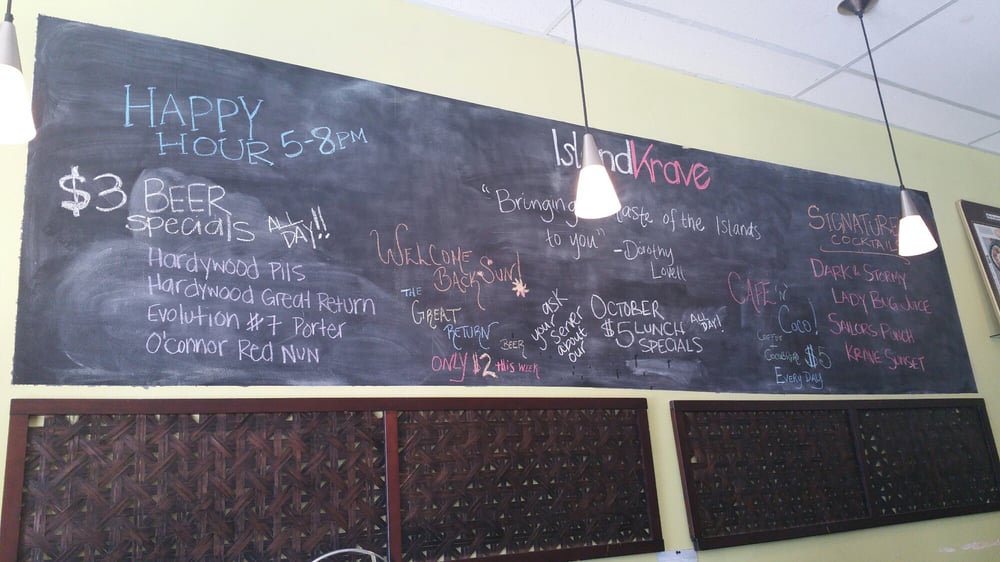 HAPPY
HOUR 5-8PM
$3 BEER
specials ALL DAY!!
Hardywood Pils
Hardywood Great Return
Evolution #7 Porter
O'connor Red Nun
WELCOME
BACK SUN!
THE
GREAT
RETURN
BEER
ONLY $2 this week
IslandKrave
"Bringing taste of the Islands
to you"
-Dorothy
Lovell
ask
your
server
about
our
OCTOBER
$5 LUNCH
SPECIALS
ALL
DAY!
CAFE 'N
COCO!
COFFEE
+
$5
EVERY DAY
SIGNATURE
COCKTAILS
DARK & STORMY
LADY BUG JUICE
SAILORS PUNCH
KRAVE SUNSET